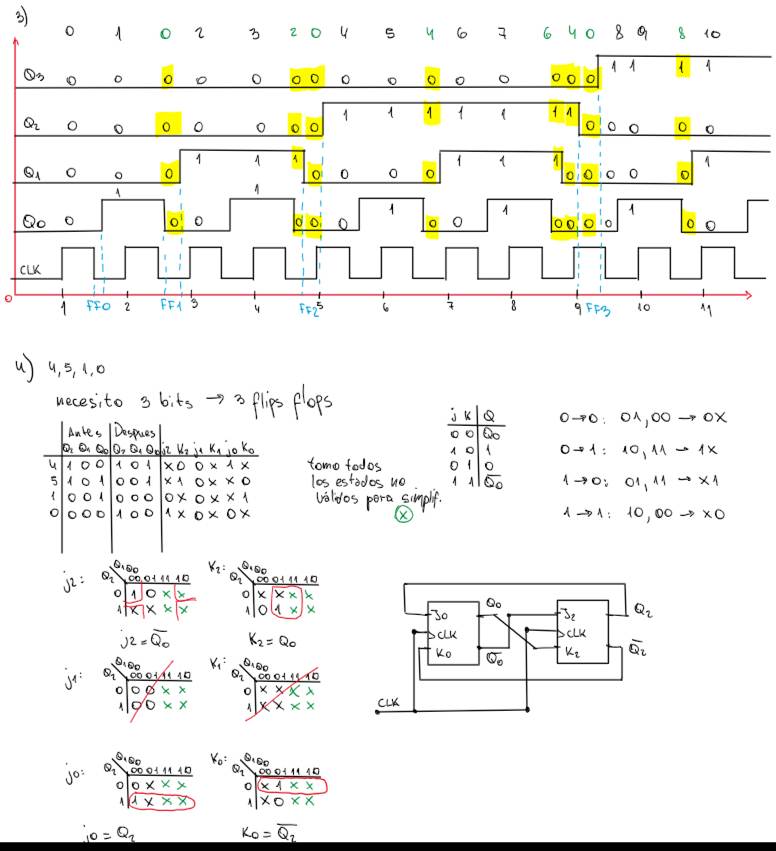 3)
0 1 0 2 3 2 0 4 5 4 6 7 6 4 0 8 9 8 10
Q3 0 0 0 0 0 0 0 0 0 0 0 0 0 0 0 1 1 1 1
Q2 0 0 0 0 0 0 0 1 1 1 1 1 1 1 0 0 0 0 0
Q1 0 0 0 1 1 1 0 0 0 0 1 1 1 0 0 0 0 0 1
Q0 0 1 0 0 1 0 0 0 1 0 0 1 0 0 0 0 1 0 0
CLK
0 1 FF0 2 FF1 3 4 FF2 5 6 7 8 9 FF3 10 11
4) 4,5,1,0
necesito 3 bits → 3 flips flops
Antes Despues
Q2 Q1 Q0 Q2 Q1 Q0 j2 K2 j1 K1 j0 K0
4 1 0 0 1 0 1 x 0 0 x 1 x
5 1 0 1 0 0 1 x 1 0 x x 0
1 0 0 1 0 0 0 0 x 0 x x 1
0 0 0 0 1 0 0 1 x 0 x 0 x
tomo todos
los estados no
válidos para simplif.
x
j K Q
0 0 Q0
1 0 1
0 1 0
1 1 Q̅0
0→0: 01,00 → 0X
0→1: 10,11 → 1X
1→0: 01,11 → X1
1→1: 10,00 → X0
j2:
Q1Q0
Q2 00 01 11 10
0 1 0 x x
1 x x x x
j2 = Q̅0
K2:
Q1Q0
Q2 00 01 11 10
0 x x x x
1 0 1 x x
K2 = Q0
j1:
Q1Q0
Q2 00 01 11 10
0 0 0 x x
1 0 0 x x
K1:
Q1Q0
Q2 00 01 11 10
0 x x x x
1 x x x x
j0:
Q1Q0
Q2 00 01 11 10
0 0 x x x
1 1 x x x
j0 = Q2
K0:
Q1Q0
Q2 00 01 11 10
0 x 1 x x
1 x 0 x x
K0 = Q̅2
j0 Q0 j2 Q2
CLK CLK
K0 Q̅0 K2 Q̅2
CLK